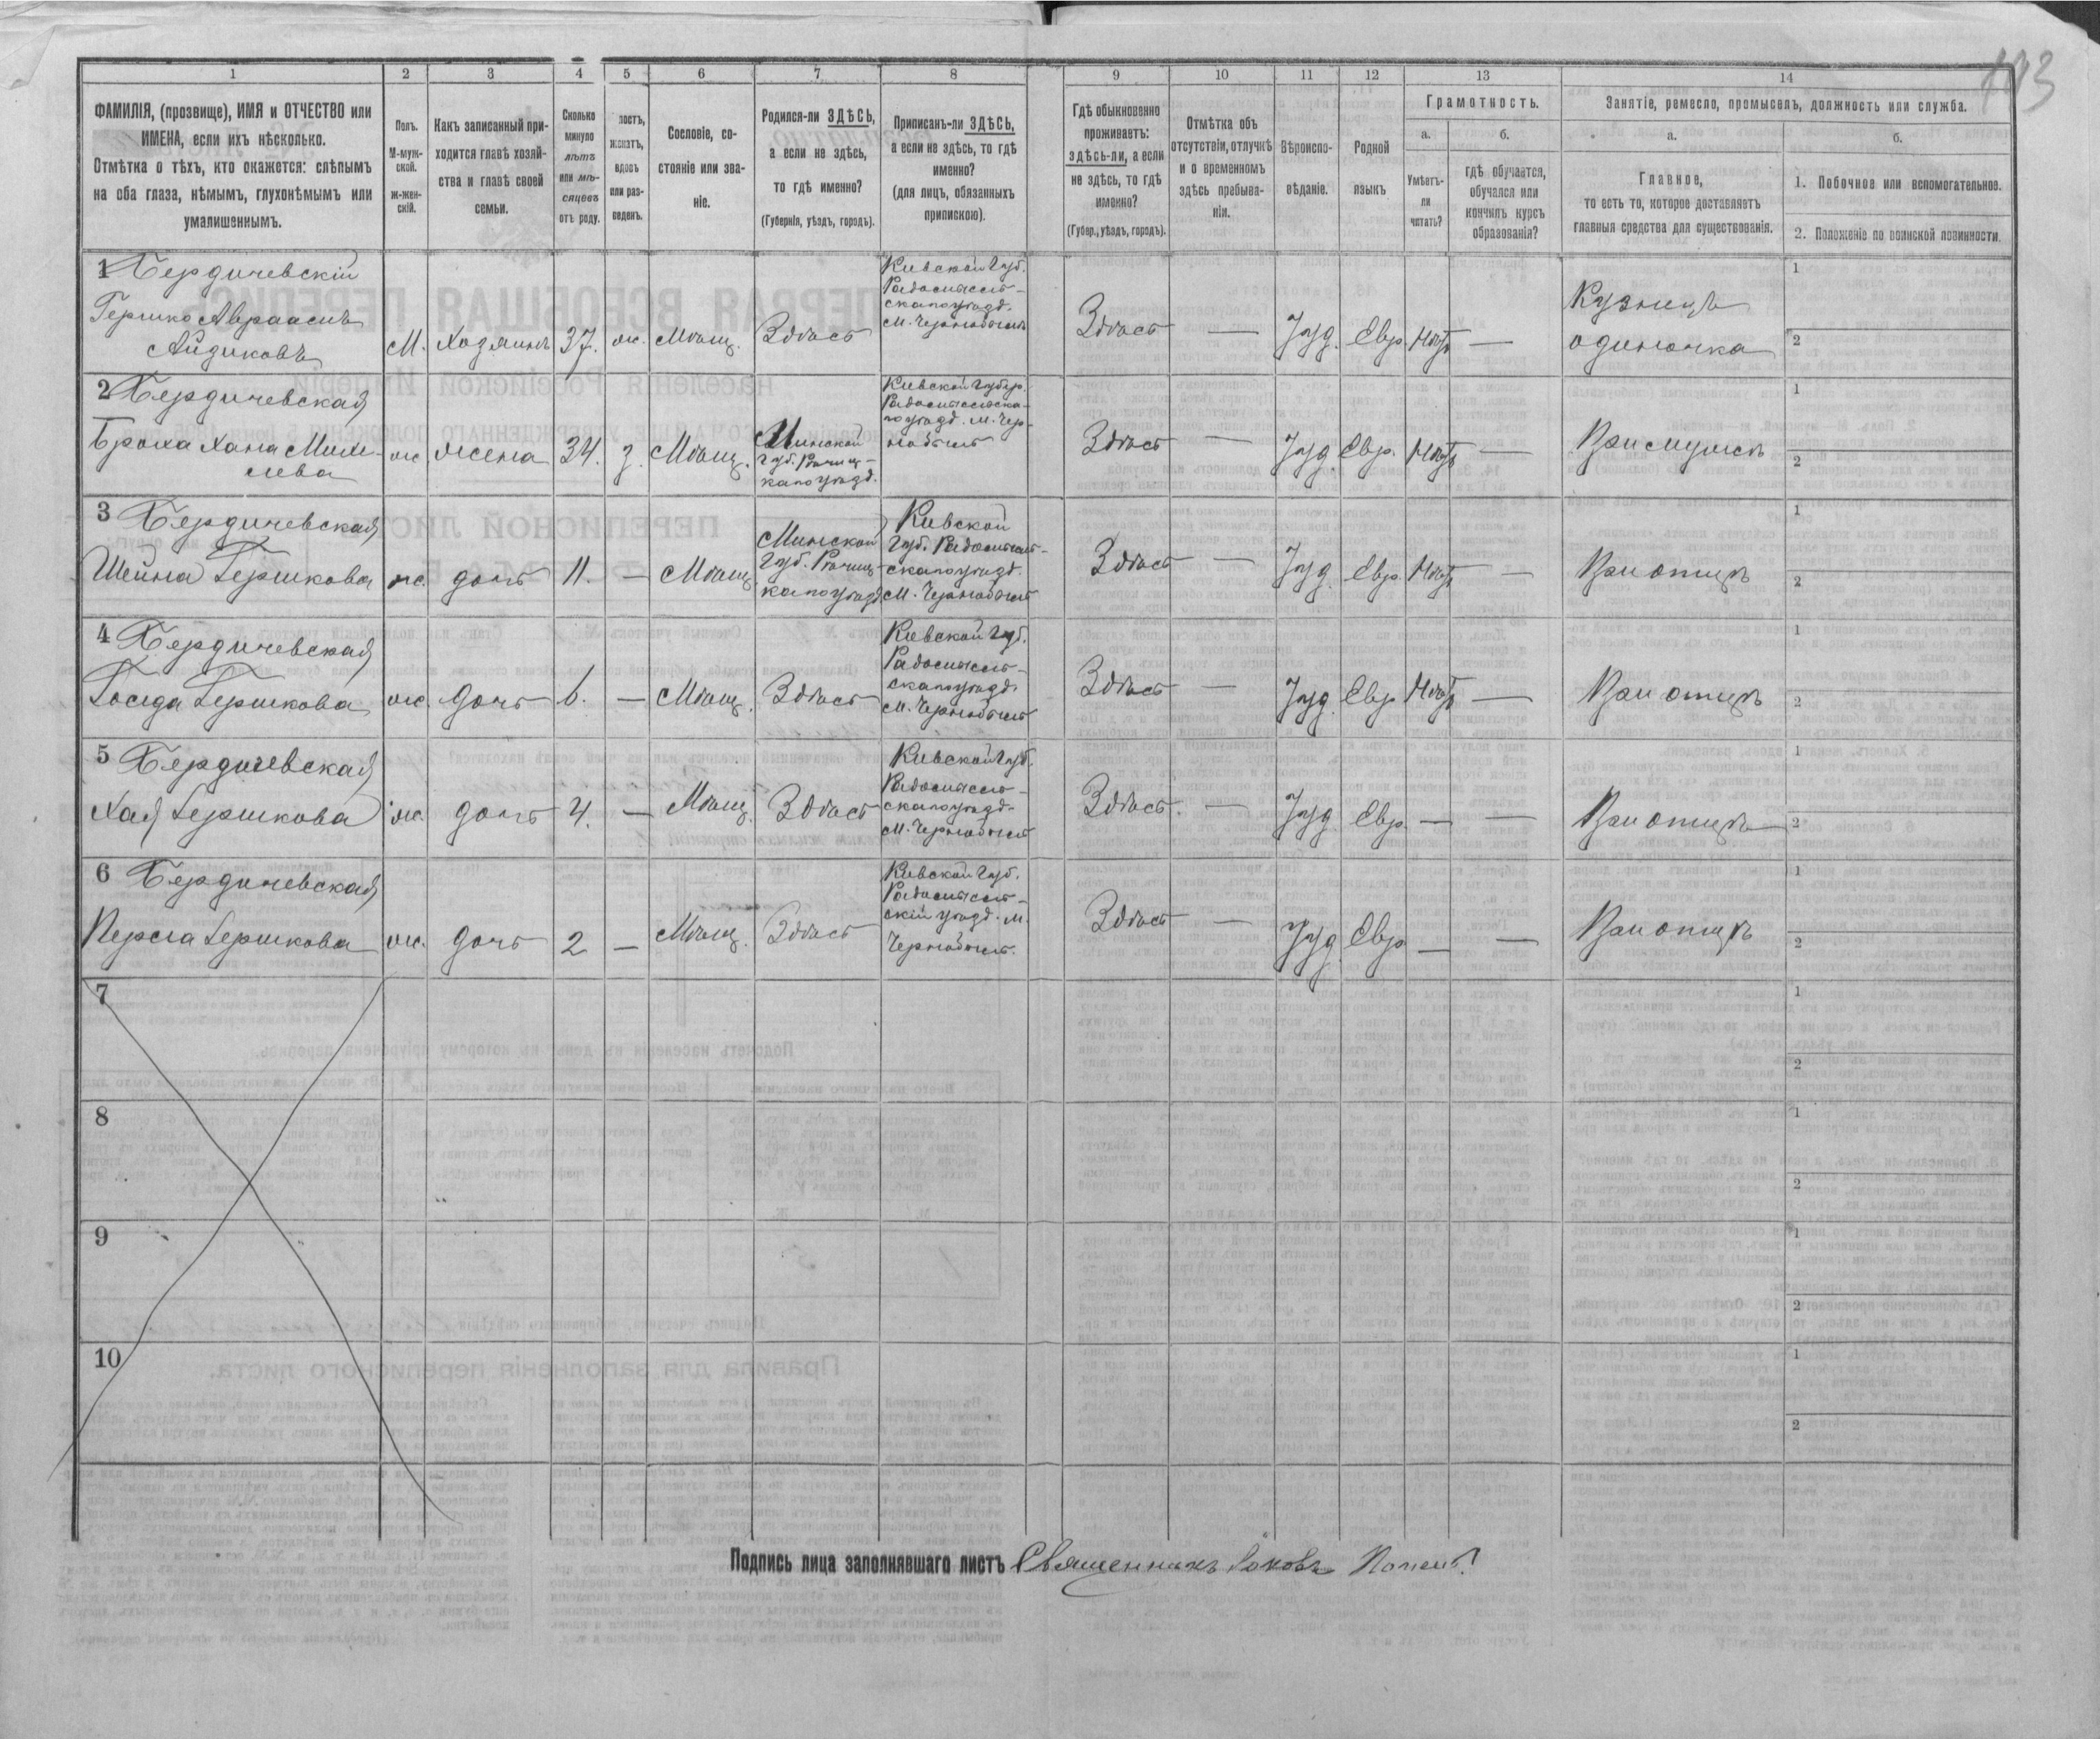 193
1 2 3 4 5 6 7 8 9 10 11 12 13 14
ФАМИЛІЯ, (прозвище), ИМЯ и ОТЧЕСТВО или
ИМЕНА, если ихъ нѣсколько.
Отмѣтка о тѣхъ, кто окажется: слѣпымъ
на оба глаза, нѣмымъ, глухонѣмымъ или
умалишеннымъ.
Полъ.
М-муж-
ской.
ж-жен-
скій.
Какъ записанный при-
ходится главѣ хозяй-
ства и главѣ своей
семьи.
Сколько
минуло
лѣтъ
или мѣ-
сяцевъ
отъ роду.
лостъ,
женатъ,
вдовъ
или раз-
веденъ.
Сословіе, со-
стояніе или зва-
ніе.
Родился-ли ЗДѢСЬ,
а если не здѣсь,
то гдѣ именно?
(Губернія, уѣздъ, городъ).
Приписанъ-ли ЗДѢСЬ,
а если не здѣсь, то гдѣ
именно?
(для лицъ, обязанныхъ
припискою).
Гдѣ обыкновенно
проживаетъ:
здѣсь-ли, а если
не здѣсь, то гдѣ
именно?
(Губер., уѣздъ, городъ).
Отмѣтка объ
отсутствіи, отлучкѣ
и о временномъ
здѣсь пребыва-
ніи.
Вѣроиспо-
вѣданіе.
Родной
языкъ
Грамотность.
а.
Умѣетъ-
ли
читать?
б.
гдѣ обучается,
обучался или
кончилъ курсъ
образованія?
Занятіе, ремесло, промыселъ, должность или служба.
а.
Главное,
то есть то, которое доставляетъ
главныя средства для существованія.
б.
1. Побочное или вспомогательное.
2. Положеніе по воинской повинности.
1 Бердичевскій
Гершко Авраамъ
Айзиковъ
М. Хозяинъ 37. ж. Мѣщ. Здѣсь
Кіевской Губ.
Радомысль-
скаго уѣзд.
М. Чернобыль
Здѣсь — Іуд. Евр. Нѣтъ —
Кузнецъ
одиночка
1
2
2 Бердичевская
Броха Хана Михе-
лева
ж. жена 34. з. Мѣщ.
Минской
губ. Рѣчиц-
каго уѣзд.
Кіевской Губер.
Радомысльска-
го уѣзд. м. Чер-
нобыль
Здѣсь — Іуд. Евр. Нѣтъ
При мужѣ
1
2
3 Бердичевская
Шейна Гершкова
ж. дочь 11. — Мѣщ.
Минской
Губ. Рѣчиц-
каго уѣзд.
Кіевской
Губ. Радомысль-
скаго уѣзд.
М. Чернобыль
Здѣсь — Іуд. Евр. Нѣтъ —
При отцѣ
1
2
4 Бердичевская
Гершкова
ж. дочь 6. — Мѣщ. Здѣсь
Кіевской Губ.
Радомысль-
скаго уѣзд.
М. Чернобыль
Здѣсь — Іуд. Евр. Нѣтъ —
При отцѣ
1
2
5 Бердичевская
Хая Гершкова
ж. дочь 4. — Мѣщ. Здѣсь
Кіевской Губ.
Радомысль-
скаго уѣзд.
М. Чернобыль
Здѣсь. — Іуд. Евр. — —
При отцѣ
1
2
6 Бердичевская
Перла Гершкова
ж. дочь 2 — Мѣщ. Здѣсь
Кіевской Губ.
Радомысль-
скій уѣзд. М.
Чернобыль.
Здѣсь — Іуд. Евр. — —
При отцѣ
1
2
7
1
2
8
1
2
9
1
2
10
1
2
Подпись лица заполнявшаго листъ Священникъ Іаковъ